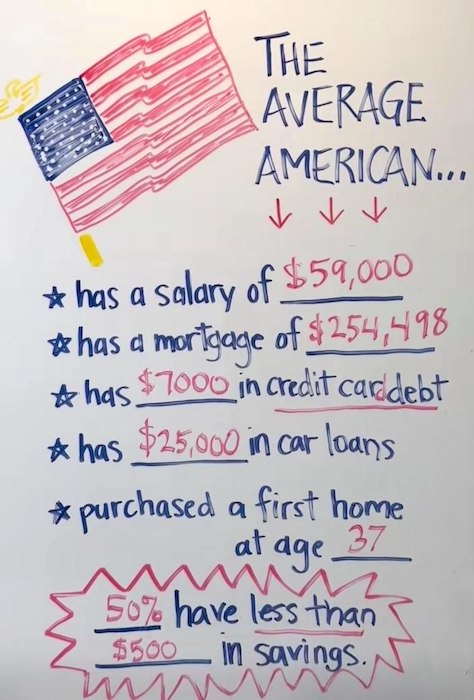 THE
AVERAGE
AMERICAN...
has a salary of $59,000
has a mortgage of $254,498
has $7000 in credit card debt
has $25,000 in car loans
purchased a first home
at age 37
50% have less than
$500 in savings.